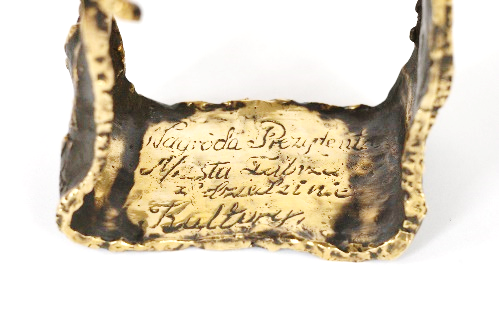 Nagroda Prezydenta
Miasta Zabrze
w dziedzinie
Kultury